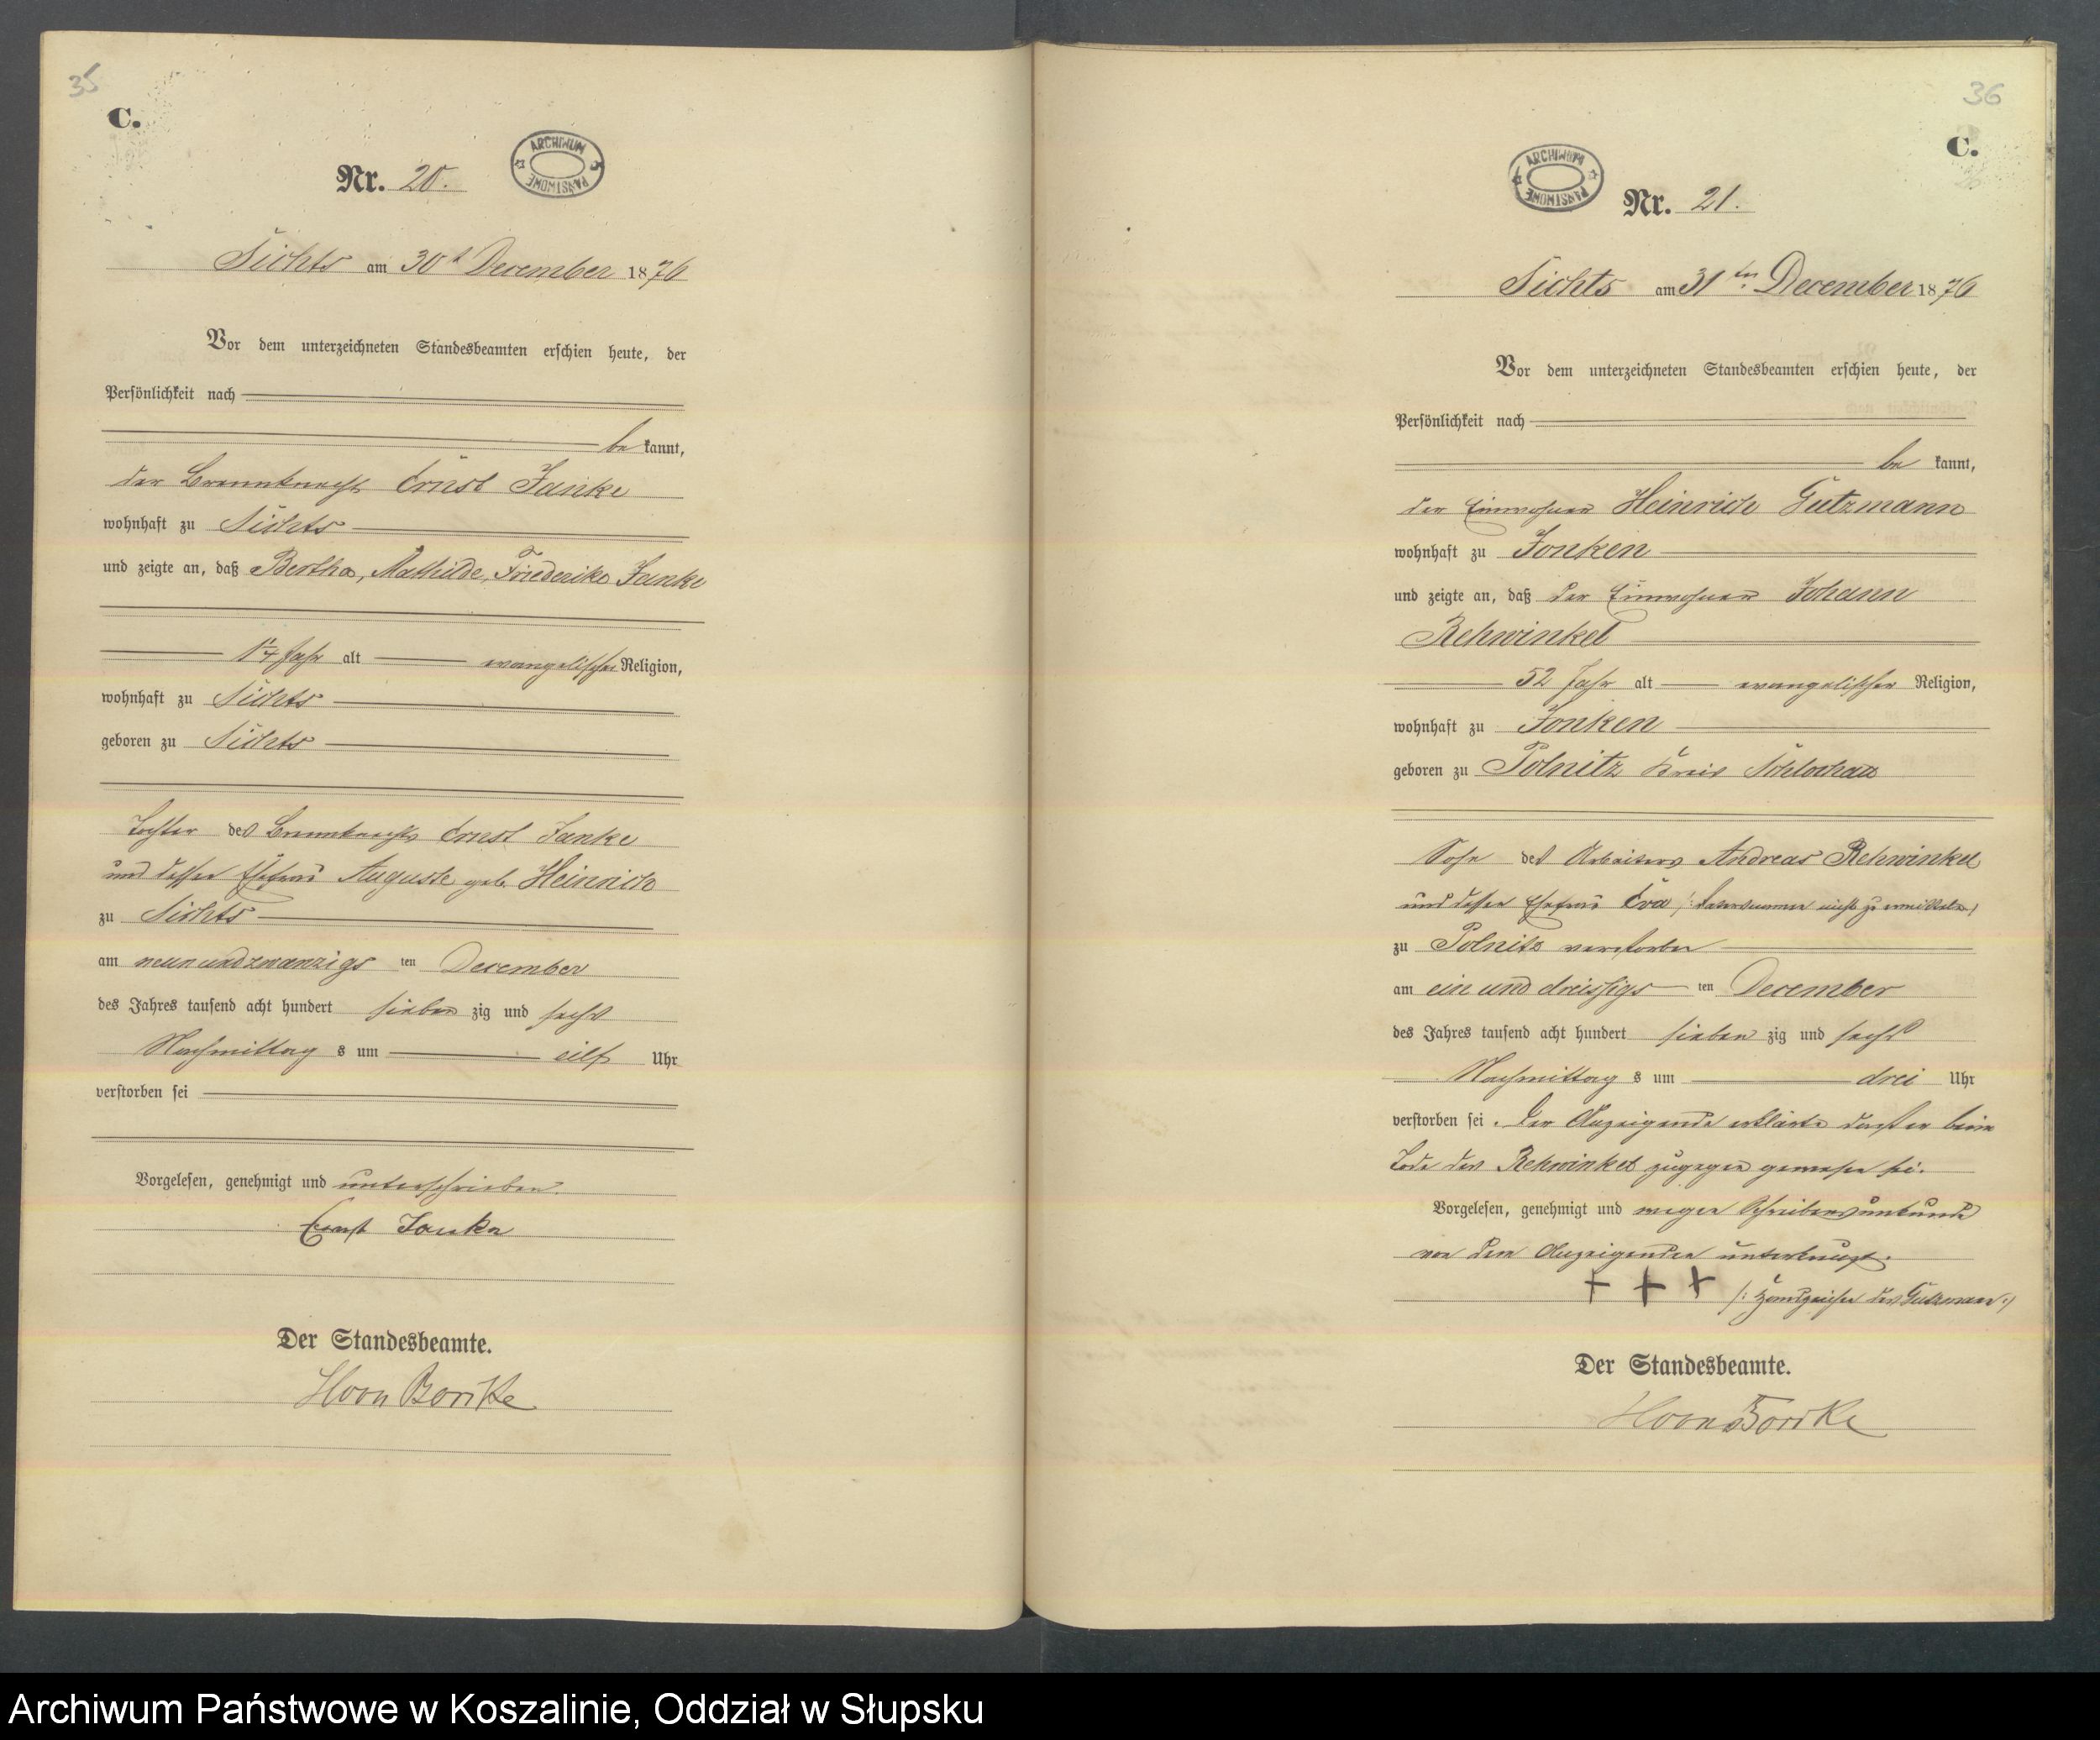 35
C.
Nr. 20.
ARCHIWUM PAŃSTWOWE
Sichts am 30t December 1876
Vor dem unterzeichneten Standesbeamten erschien heute, der
Persönlichkeit nach
bekannt,
der Brennknecht Ernst Janke
wohnhaft zu Sichts
und zeigte an, daß Bertha, Mathilde, Friederike Janke
1¼ Jahr alt evangelischer Religion,
wohnhaft zu Sichts
geboren zu Sichts
Tochter des Brennknechts Ernst Janke
und dessen Ehefrau Auguste geb. Heinrich
zu Sichts
am neunundzwanzigsten December
des Jahres tausend acht hundert siebenzig und sechs
Nachmittags um eilf Uhr
verstorben sei
Vorgelesen, genehmigt und unterschrieben.
Ernst Janke
Der Standesbeamte.
36
C.
ARCHIWUM PAŃSTWOWE
Nr. 21.
Sichts am 31ten December 1876
Vor dem unterzeichneten Standesbeamten erschien heute, der
Persönlichkeit nach
bekannt,
der Einwohner Heinrich Gützmann
wohnhaft zu Jonken
und zeigte an, daß der Einwohner Johann
Rehwinkel
52 Jahr alt evangelischer Religion,
wohnhaft zu Jonken
geboren zu Polnitz Kreis Schlochau
Sohn des Arbeiters Andreas Rehwinkel
und dessen Ehefrau Eva /: nicht zu ermitteln :/
zu Polnitz verstorben
am ein und dreissigsten December
des Jahres tausend acht hundert siebenzig und sechs
Nachmittags um drei Uhr
verstorben sei. Der Anzeigende erklärte daß er beim
Tode des Rehwinkel zugegen gewesen sei.
Vorgelesen, genehmigt und wegen Schreibensunkunde
von dem Anzeigenden unterkreuzt.
+ + + /: Handzeichen des Gützmann :/
Der Standesbeamte.
Archiwum Państwowe w Koszalinie, Oddział w Słupsku